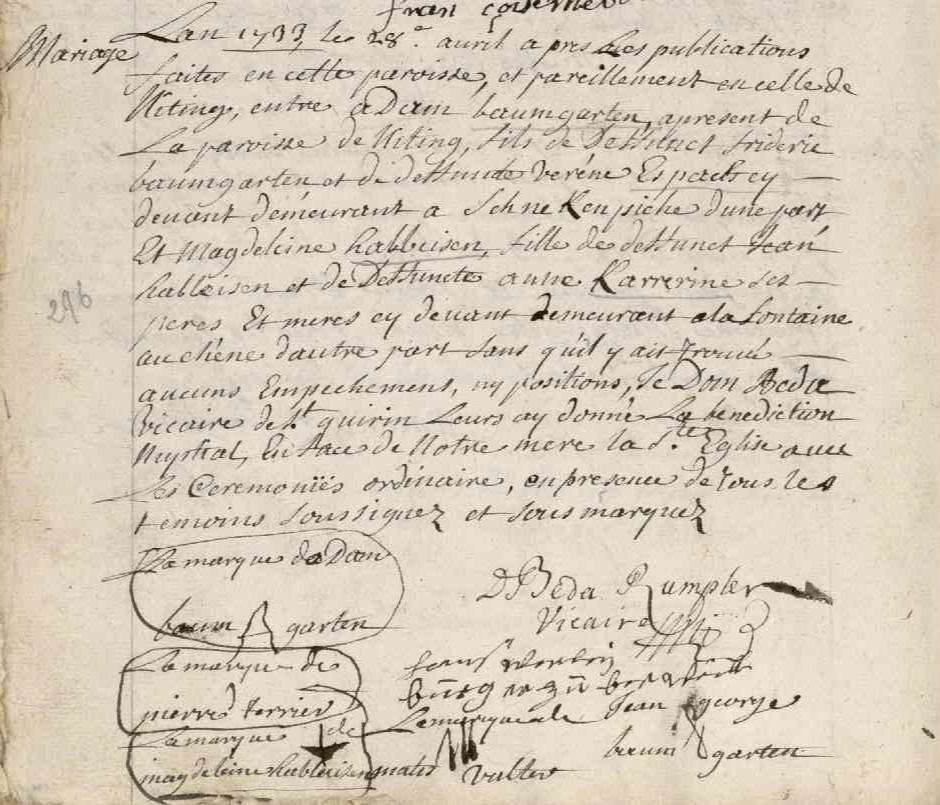 Mariage
Lan 1733 les 28e avril apres les publications
faites en cette paroisse, et pareillement en celle de
Niting, entre aDam baumgarten, apresent de
La paroisse de Niting, fils de deffunct frideric
baumgarten et de deffuncte veréne Espachs cy
devant démeurant a Schnekenpiche dune part
Et Magdeleine habbeisen, fille de deffunct
habbeisen et de Deffuncte anne Karrerine ses
peres Et meres cy devant demeurant a la fontaine
au chéne dautre part sans qu'il y ait trouvé
aucuns Empechemens, ny positions, Je Dom Beda
vicaire de St quirin Leurs ay donné La benediction
Nuptial, En face de Notre mere la Ste Eglise avec
les Ceremoniës ordinaire, en presence de tous les
temoins soussignez et sous marquez
La marque dadam
baum garten
D Beda Rumpler
Vicaire
La marque de
pierre terrier
La marque de
magdeleine habbeisen
La marque de Jean george
baum garten
296